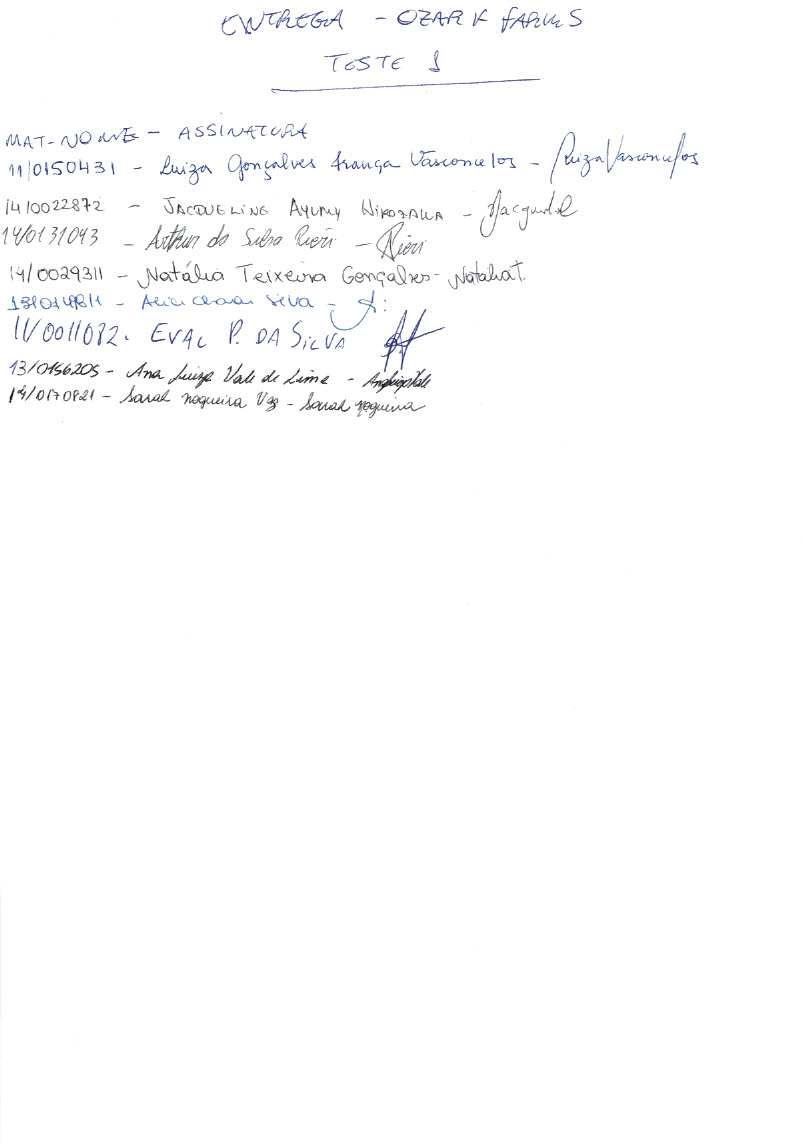 ENTREGA - OZARK FARMS
TESTE 1
MAT-NOME - ASSINATURA
11/0150431 - Luiza Gonçalves França Vasconcelos - Luiza Vasconcelos
14/0022872 - JACQUELINE AYUMY
14/0131093 - Arthur da Silva Rieri - Rieri
14/0029311 - Natália Teixeira Gonçalves - Natália T.
Silva -
11/0011082. EVAL P. DA SILVA
13/0156205 - Ana Luiza Vale de Lima -
14/0170821 - Sarah Nogueira Vaz - Sarah Nogueira